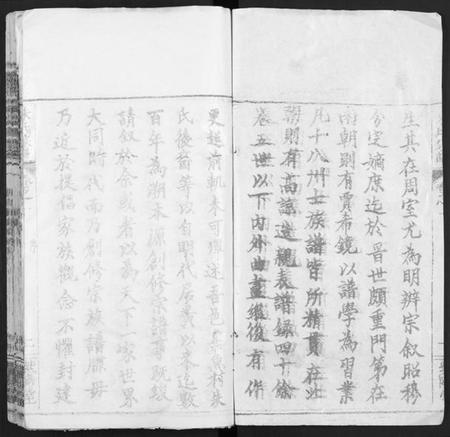 生其在周室尤為明辨宗叙昭穆
分定嫡庶迄於晋世頗重門第在
南朝則有賈希鏡以譜學為習業
凡十八州士族譜皆所精貫在江
朝則有高諒造親表譜録四十餘
卷五世以下内外曲盡繼後有作
更超前軌未可
氏後裔等以自明代居義以來迄數
百年為期本源創修宗譜事既竣
請叙於余或者以為天下一家世界
大同時代而乃創修宗族譜牒毋
乃近於提倡家族觀念不懼封建